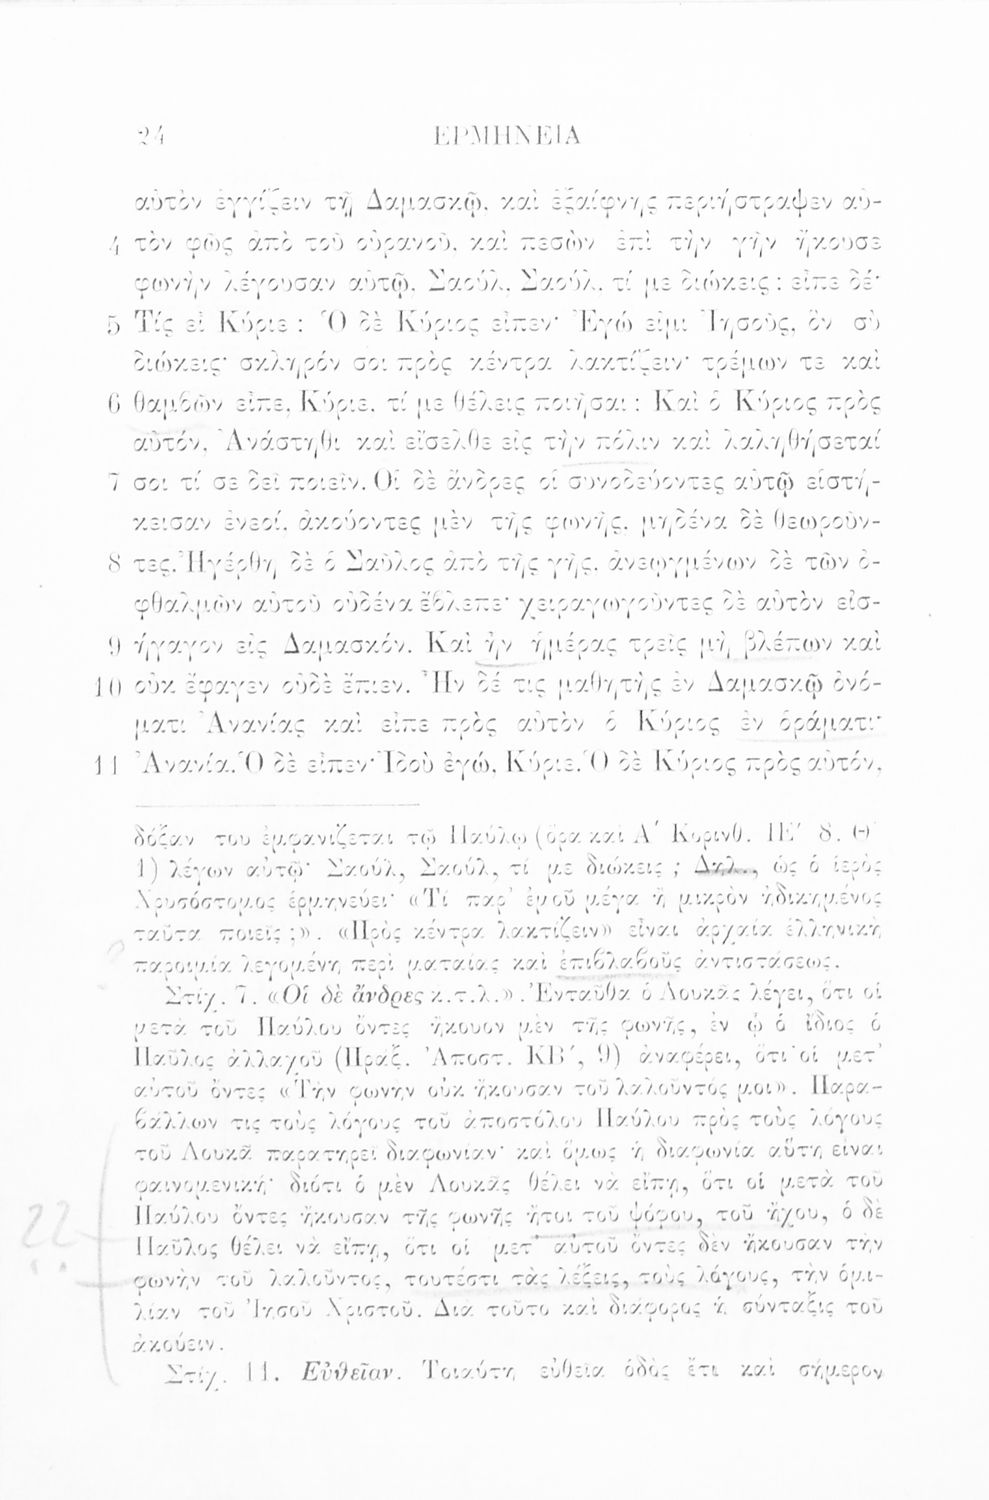 24 ΕΡΜΗΝΕΙΑ
αὐτὸν ἐγγίζειν τῇ Δαμασκῷ, καὶ ἐξαίφνης περιήστραψεν αὐ-
4 τὸν φῶς ἀπὸ τοῦ οὐρανοῦ, καὶ πεσὼν ἐπὶ τὴν γῆν ἤκουσε
φωνὴν λέγουσαν αὐτῷ, Σαούλ, Σαούλ, τί με διώκεις; εἶπε δέ·
5 Τίς εἶ Κύριε; Ὁ δὲ Κύριος εἶπεν· Ἐγώ εἰμι Ἰησοῦς, ὃν σὺ
διώκεις· σκληρόν σοι πρὸς κέντρα λακτίζειν· τρέμων τε καὶ
6 θαμβῶν εἶπε, Κύριε, τί με θέλεις ποιῆσαι; Καὶ ὁ Κύριος πρὸς
αὐτόν, Ἀνάστηθι καὶ εἴσελθε εἰς τὴν πόλιν καὶ λαληθήσεταί
7 σοι τί σε δεῖ ποιεῖν. Οἱ δὲ ἄνδρες οἱ συνοδεύοντες αὐτῷ εἱστή-
κεισαν ἐνεοί, ἀκούοντες μὲν τῆς φωνῆς, μηδένα δὲ θεωροῦν-
8 τες. Ἠγέρθη δὲ ὁ Σαῦλος ἀπὸ τῆς γῆς, ἀνεῳγμένων δὲ τῶν ὀ-
φθαλμῶν αὐτοῦ οὐδένα ἔβλεπε· χειραγωγοῦντες δὲ αὐτὸν εἰσ-
9 ήγαγον εἰς Δαμασκόν. Καὶ ἦν ἡμέρας τρεῖς μὴ βλέπων καὶ
10 οὐκ ἔφαγεν οὐδὲ ἔπιεν. Ἦν δέ τις μαθητὴς ἐν Δαμασκῷ ὀνό-
ματι Ἀνανίας καὶ εἶπε πρὸς αὐτὸν ὁ Κύριος ἐν ὁράματι·
11 Ἀνανία. Ὁ δὲ εἶπεν· Ἰδοὺ ἐγώ, Κύριε. Ὁ δὲ Κύριος πρὸς αὐτόν,
δόξαν του ἐμφανίζεται τῷ Παύλῳ (ὅρα καὶ Α΄ Κορινθ. ΙΕ΄ 8. Θ΄
1) λέγων αὐτῷ· Σαούλ, Σαούλ, τί με διώκεις ; Δηλ., ὡς ὁ ἱερὸς
Χρυσόστομος ἑρμηνεύει· «Τί παρ' ἐμοῦ μέγα ἢ μικρὸν ἠδικημένος
ταῦτα ποιεῖς ;». «Πρὸς κέντρα λακτίζειν» εἶναι ἀρχαία ἑλληνικὴ
παροιμία λεγομένη περὶ ματαίας καὶ ἐπιβλαβοῦς ἀντιστάσεως.
Στίχ. 7. «Οἱ δὲ ἄνδρες κ.τ.λ.». Ἐνταῦθα ὁ Λουκᾶς λέγει, ὅτι οἱ
μετὰ τοῦ Παύλου ὄντες ἤκουον μὲν τῆς φωνῆς, ἐν ᾧ ὁ ἴδιος ὁ
Παῦλος ἀλλαχοῦ (Πράξ. Ἀποστ. ΚΒ΄, 9) ἀναφέρει, ὅτι οἱ μετ'
αὐτοῦ ὄντες «Τὴν φωνὴν οὐκ ἤκουσαν τοῦ λαλοῦντός μοι». Παρα-
βάλλων τις τοὺς λόγους τοῦ ἀποστόλου Παύλου πρὸς τοὺς λόγους
τοῦ Λουκᾶ παρατηρεῖ διαφωνίαν· καὶ ὅμως ἡ διαφωνία αὕτη εἶναι
φαινομενική· διότι ὁ μὲν Λουκᾶς θέλει νὰ εἴπῃ, ὅτι οἱ μετὰ τοῦ
Παύλου ὄντες ἤκουσαν τῆς φωνῆς ἤτοι τοῦ ψόφου, τοῦ ἤχου, ὁ δὲ
Παῦλος θέλει νὰ εἴπῃ, ὅτι οἱ μετ' αὐτοῦ ὄντες δὲν ἤκουσαν τὴν
φωνὴν τοῦ λαλοῦντος, τουτέστι τὰς λέξεις, τοὺς λόγους, τὴν ὁμι-
λίαν τοῦ Ἰησοῦ Χριστοῦ. Διὰ τοῦτο καὶ διάφορος ἡ σύνταξις τοῦ
ἀκούειν.
Στίχ. 11. Εὐθεῖαν. Τοιαύτη εὐθεῖα ὁδὸς ἔτι καὶ σήμερον
??